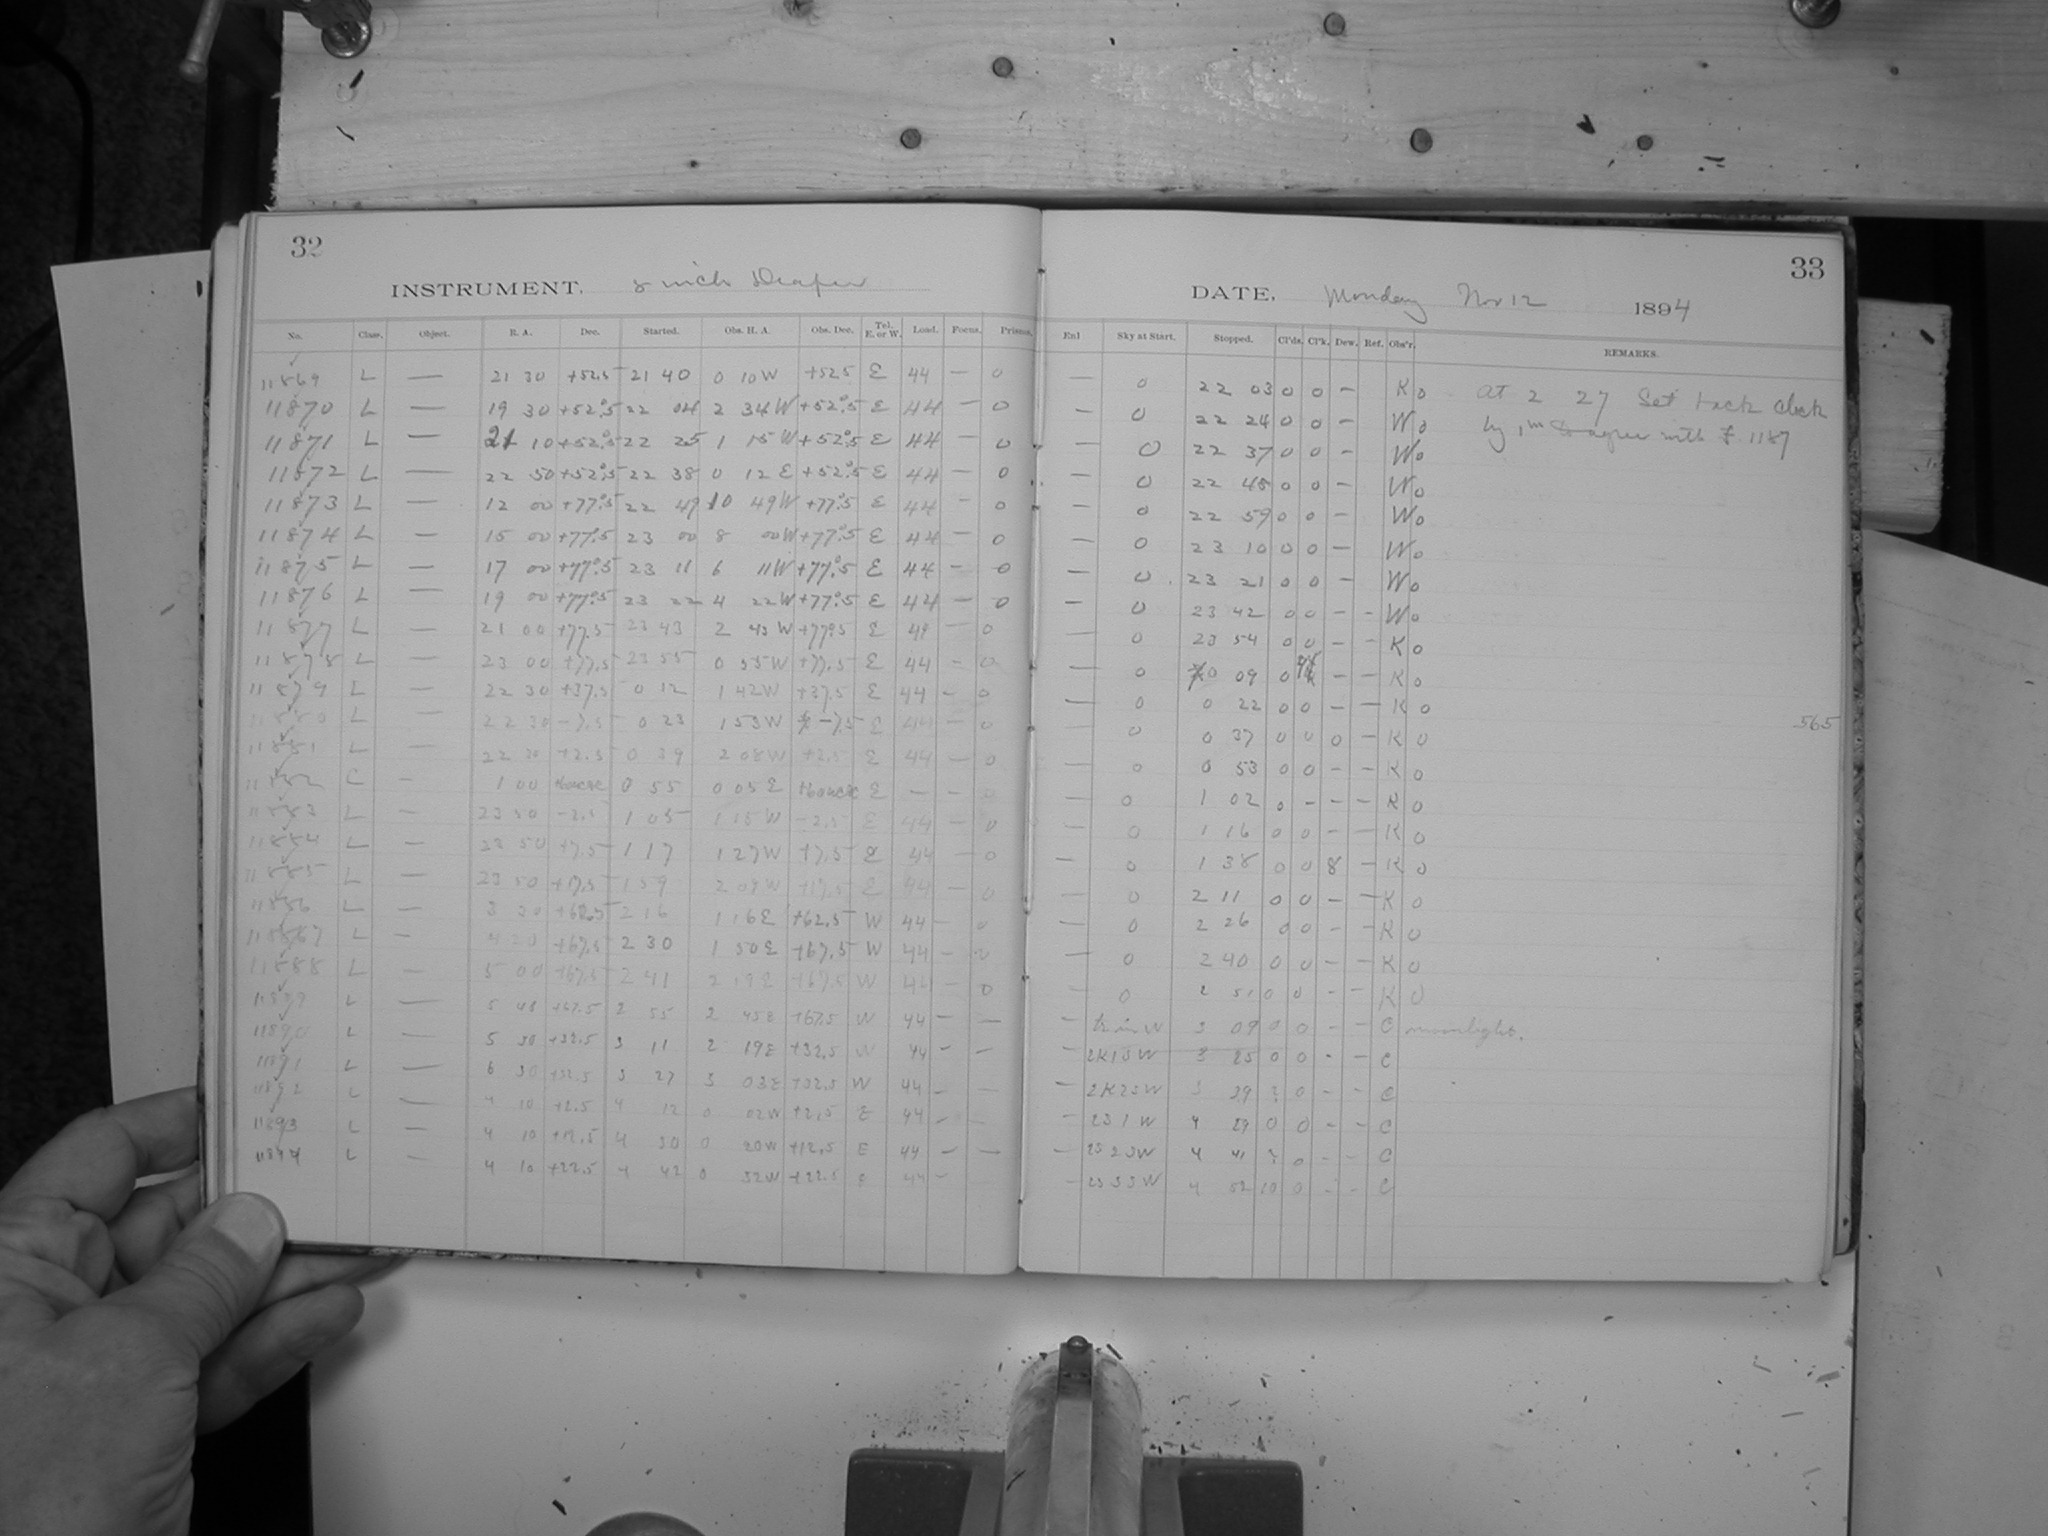 32
INSTRUMENT. 8 inch Draper
No. Class. Object. R. A. Dec. Started. Obs. H. A. Obs. Dec. Tel. E. or W. Load. Focus. Prisms.
11869 L — 21 30 +52.5 21 40 0 10W +52.5 E 44 — 0
11870 L — 19 30 +52°.5 22 04 2 34W +52°.5 E 44 — 0
11871 L — 21 10 +52°.5 22 25 1 15W +52°.5 E 44 — 0
11872 L — 22 50 +52°.5 22 38 0 12 E +52°.5 E 44 — 0
11873 L — 12 00 +77°.5 22 49 10 49W +77°.5 E 44 — 0
11874 L — 15 00 +77°.5 23 00 8 00W +77°.5 E 44 — 0
11875 L — 17 00 +77°.5 23 11 6 11W +77°.5 E 44 — 0
11876 L — 19 00 +77°.5 23 22 4 22W +77°.5 E 44 — 0
11877 L — 21 00 +77.5 23 43 2 43 W +77°.5 E 44 — 0
11878 L — 23 00 +77.5 23 55 0 55W +77.5 E 44 — 0
11879 L — 22 30 +37.5 0 12 1 42W +37.5 E 44 — 0
11880 L — 22 30 -7.5 0 23 1 53W -7.5 E 44 — 0
11881 L — 22 30 +2.5 0 39 2 08W +2.5 E 44 — 0
11882 C — 1 00 0 55 0 05E E — — 0
11883 L — 23 50 -2.5 1 05 1 15W -2.5 E 44 — 0
11884 L — 23 50 +7.5 1 17 1 27W +7.5 E 44 — 0
11885 L — 23 50 +17.5 1 59 2 09W +17.5 E 44 — 0
11886 L — 3 30 +62.5 2 16 1 16E +62.5 W 44 — 0
11887 L — 4 20 +67.5 2 30 1 50E +67.5 W 44 — 0
11888 L — 5 00 +67.5 2 41 2 19E +67.5 W 44 — 0
11889 L — 5 40 +67.5 2 55 2 45E +67.5 W 44 — —
11890 L — 5 30 +32.5 3 11 2 19E +32.5 W 44 — —
11891 L — 6 30 +32.5 3 27 3 03E +32.5 W 44 — —
11892 L — 4 10 +2.5 4 12 0 02W +2.5 E 44 — —
11893 L — 4 10 +12.5 4 30 0 20W +12.5 E 44 — —
11894 L — 4 10 +22.5 4 42 0 32W +22.5 E 44 —
33
DATE, Monday Nov 12 1894
Enl Sky at Start. Stopped. Cl'ds. Cl'k. Dew. Ref. Obs'r. REMARKS.
— 0 22 03 0 0 — K 0 At 2 27 Set back clock
— 0 22 24 0 0 — W 0 by 1m to agree with F 1187
— 0 22 37 0 0 — W 0
— 0 22 48 0 0 — W 0
— 0 22 59 0 0 — W 0
— 0 23 10 0 0 — W 0
— 0 23 21 0 0 — W 0
— 0 23 42 0 0 — — W 0
— 0 23 54 0 0 — — K 0
— 0 0 09 0 — — K 0
— 0 0 22 0 0 — — K 0
— 0 0 37 0 0 0 — K 0 565
— 0 0 53 0 0 — — K 0
— 0 1 02 0 — — — K 0
— 0 1 16 0 0 — — K 0
— 0 1 38 0 0 8 — K 0
— 0 2 11 0 0 — — K 0
— 0 2 26 0 0 — — K 0
— 0 2 40 0 0 — — K 0
— 0 2 51 0 0 — — K 0
— W 3 09 0 0 — — C moonlight.
— 2K15W 3 25 0 0 — — C
— 2K25W 3 39 ? 0 — — C
— 231W 4 29 0 0 — — C
— 2523W 4 41 ? 0 — — C
— 2533W 4 52 10 0 — — C